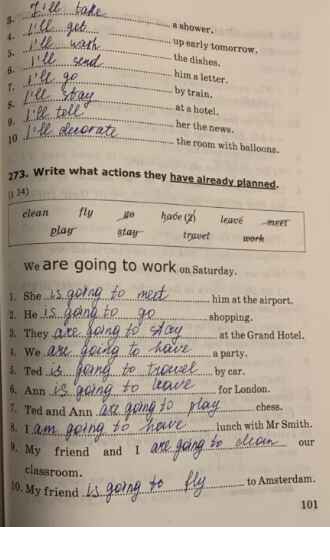 3. I'll take a shower.
4. I'll get up early tomorrow.
5. I'll wash the dishes.
6. I'll send him a letter.
7. I'll go by train.
8. I'll stay at a hotel.
9. I'll tell her the news.
10 I'll decorate the room with balloons.
273. Write what actions they have already planned.
(§ 34)
clean fly go have (2) leave meet
play stay travel work
We are going to work on Saturday.
1. She is going to meet him at the airport.
2. He is going to go shopping.
3. They are going to stay at the Grand Hotel.
4. We are going to have a party.
5. Ted is going to travel by car.
6. Ann is going to leave for London.
7. Ted and Ann are going to play chess.
8. I am going to have lunch with Mr Smith.
9. My friend and I are going to clean our
classroom.
10. My friend is going to fly to Amsterdam.
101